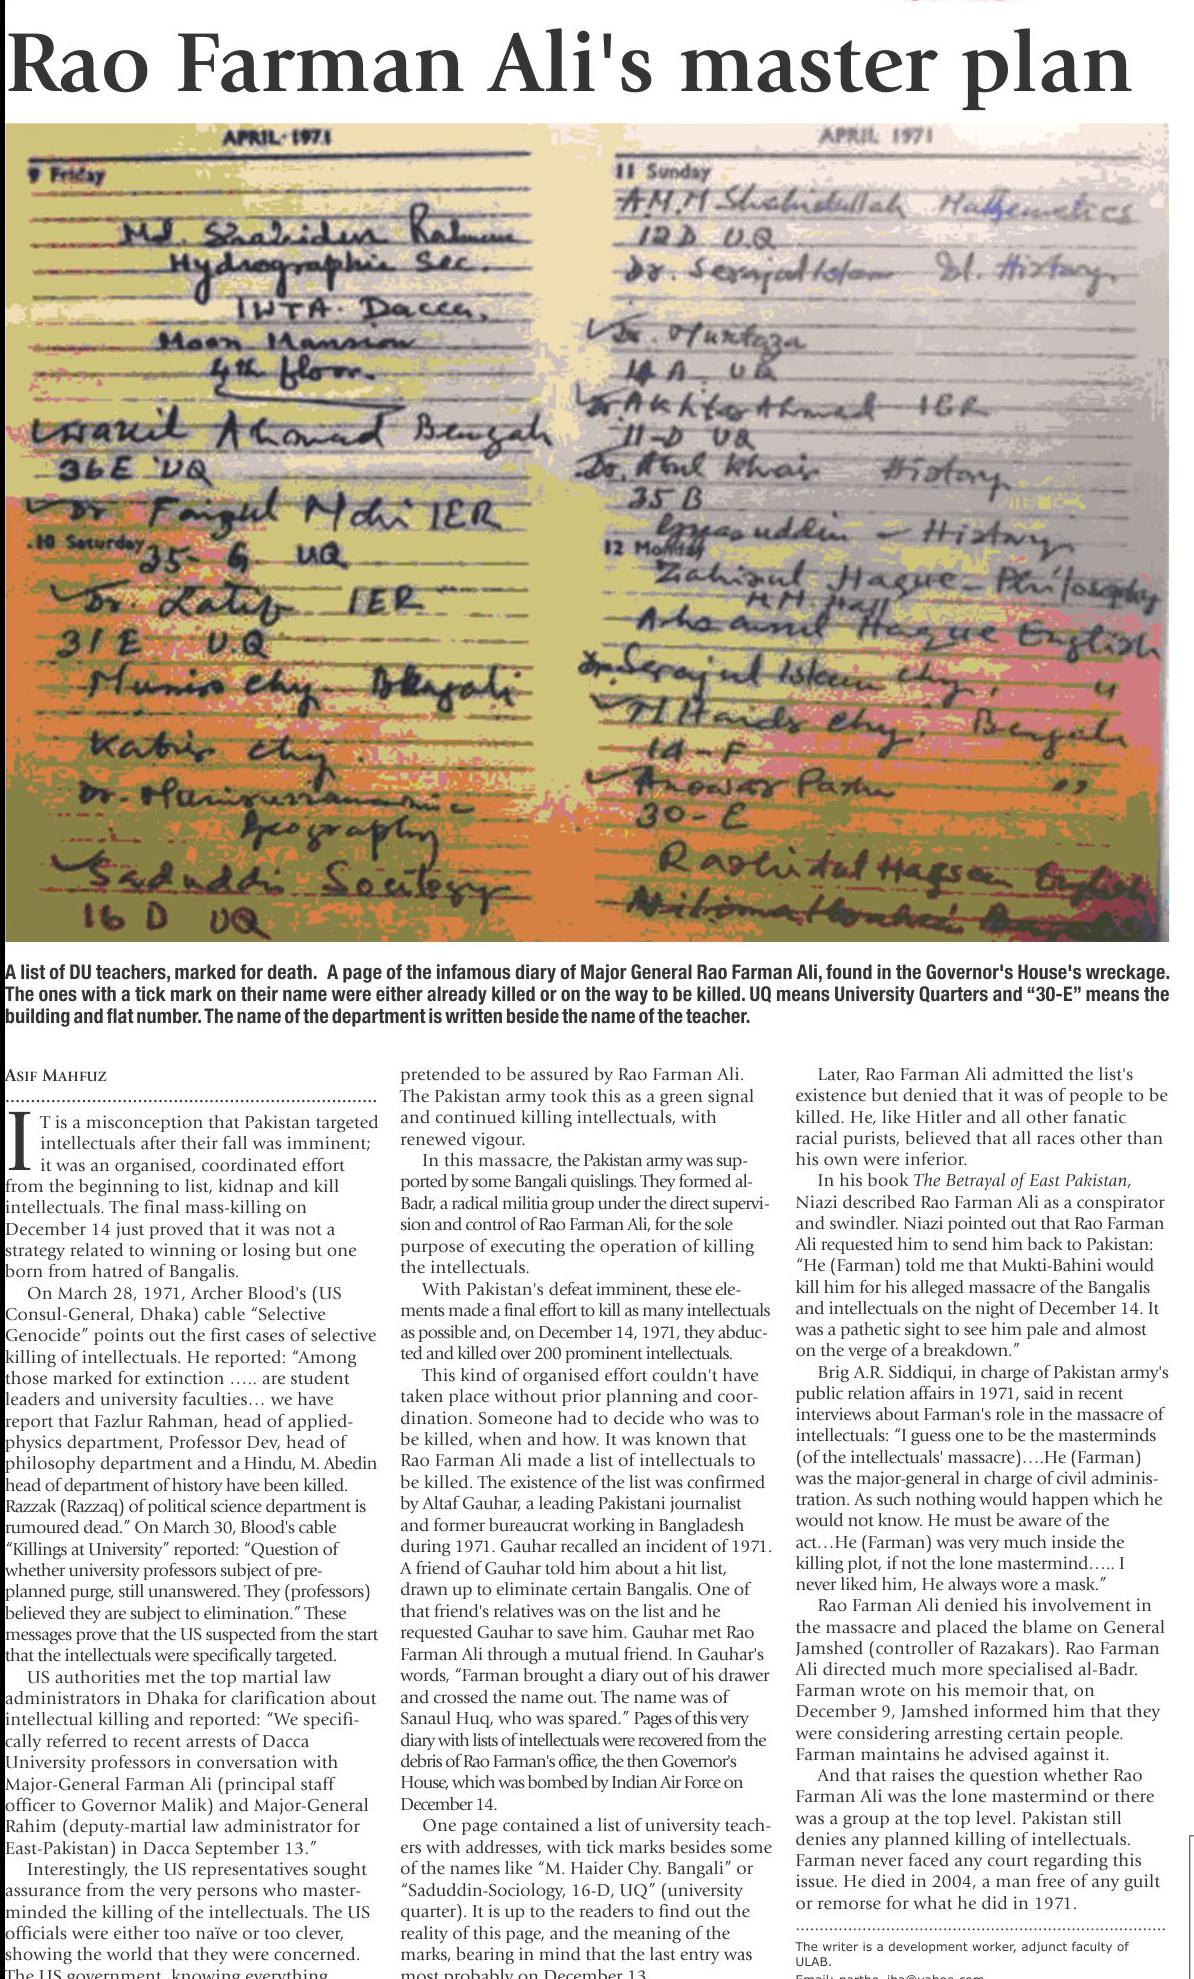 Rao Farman Ali's master plan
APRIL 1971
9 Friday
Md. Shahidur Rahman
Hydrographic Sec.
IWTA. Dacca.
Moon Mansion
4th floor.
Wakil Ahmad Bengali
36E UQ
Dr Faizul Mohi IER
10 Saturday
35 G UQ
Dr. Latif IER
31 E U.Q
Munir Chy. Bengali
Kabir Chy.
Dr.
Geography
Saduddin Sociology
16 D UQ
APRIL 1971
11 Sunday
A.M.M Shahidullah Mathematics
12 D U.Q
Dr. Serajul Islam Isl. History
Dr. Murtaza
14 A UQ
Dr Akhtar Ahmad IER
11-D UQ
Dr. Abul Khair History
35 B
Gyasuddin - History
12 Monday
Zahirul Haque - Philosophy
M.M. Hall
Ahsanul Haque English
Dr. Serajul Islam Chy. "
M Haider Chy. Bengali
14-F
Anowar Pasha "
30-E
Rashidul Hassan English
A list of DU teachers, marked for death. A page of the infamous diary of Major General Rao Farman Ali, found in the Governor's House's wreckage.
The ones with a tick mark on their name were either already killed or on the way to be killed. UQ means University Quarters and “30-E” means the
building and flat number. The name of the department is written beside the name of the teacher.
ASIF MAHFUZ
IT is a misconception that Pakistan targeted
intellectuals after their fall was imminent;
it was an organised, coordinated effort
from the beginning to list, kidnap and kill
intellectuals. The final mass-killing on
December 14 just proved that it was not a
strategy related to winning or losing but one
born from hatred of Bangalis.
On March 28, 1971, Archer Blood's (US
Consul-General, Dhaka) cable “Selective
Genocide” points out the first cases of selective
killing of intellectuals. He reported: “Among
those marked for extinction ….. are student
leaders and university faculties… we have
report that Fazlur Rahman, head of applied-
physics department, Professor Dev, head of
philosophy department and a Hindu, M. Abedin
head of department of history have been killed.
Razzak (Razzaq) of political science department is
rumoured dead.” On March 30, Blood's cable
“Killings at University” reported: “Question of
whether university professors subject of pre-
planned purge, still unanswered. They (professors)
believed they are subject to elimination.” These
messages prove that the US suspected from the start
that the intellectuals were specifically targeted.
US authorities met the top martial law
administrators in Dhaka for clarification about
intellectual killing and reported: “We specifi-
cally referred to recent arrests of Dacca
University professors in conversation with
Major-General Farman Ali (principal staff
officer to Governor Malik) and Major-General
Rahim (deputy-martial law administrator for
East-Pakistan) in Dacca September 13.”
Interestingly, the US representatives sought
assurance from the very persons who master-
minded the killing of the intellectuals. The US
officials were either too naïve or too clever,
showing the world that they were concerned.
The US government, knowing everything
pretended to be assured by Rao Farman Ali.
The Pakistan army took this as a green signal
and continued killing intellectuals, with
renewed vigour.
In this massacre, the Pakistan army was sup-
ported by some Bangali quislings. They formed al-
Badr, a radical militia group under the direct supervi-
sion and control of Rao Farman Ali, for the sole
purpose of executing the operation of killing
the intellectuals.
With Pakistan's defeat imminent, these ele-
ments made a final effort to kill as many intellectuals
as possible and, on December 14, 1971, they abduc-
ted and killed over 200 prominent intellectuals.
This kind of organised effort couldn't have
taken place without prior planning and coor-
dination. Someone had to decide who was to
be killed, when and how. It was known that
Rao Farman Ali made a list of intellectuals to
be killed. The existence of the list was confirmed
by Altaf Gauhar, a leading Pakistani journalist
and former bureaucrat working in Bangladesh
during 1971. Gauhar recalled an incident of 1971.
A friend of Gauhar told him about a hit list,
drawn up to eliminate certain Bangalis. One of
that friend's relatives was on the list and he
requested Gauhar to save him. Gauhar met Rao
Farman Ali through a mutual friend. In Gauhar's
words, “Farman brought a diary out of his drawer
and crossed the name out. The name was of
Sanaul Huq, who was spared.” Pages of this very
diary with lists of intellectuals were recovered from the
debris of Rao Farman's office, the then Governor's
House, which was bombed by Indian Air Force on
December 14.
One page contained a list of university teach-
ers with addresses, with tick marks besides some
of the names like “M. Haider Chy. Bangali” or
“Saduddin-Sociology, 16-D, UQ” (university
quarter). It is up to the readers to find out the
reality of this page, and the meaning of the
marks, bearing in mind that the last entry was
most probably on December 13.
Later, Rao Farman Ali admitted the list's
existence but denied that it was of people to be
killed. He, like Hitler and all other fanatic
racial purists, believed that all races other than
his own were inferior.
In his book The Betrayal of East Pakistan,
Niazi described Rao Farman Ali as a conspirator
and swindler. Niazi pointed out that Rao Farman
Ali requested him to send him back to Pakistan:
“He (Farman) told me that Mukti-Bahini would
kill him for his alleged massacre of the Bangalis
and intellectuals on the night of December 14. It
was a pathetic sight to see him pale and almost
on the verge of a breakdown.”
Brig A.R. Siddiqui, in charge of Pakistan army's
public relation affairs in 1971, said in recent
interviews about Farman's role in the massacre of
intellectuals: “I guess one to be the masterminds
(of the intellectuals' massacre)….He (Farman)
was the major-general in charge of civil adminis-
tration. As such nothing would happen which he
would not know. He must be aware of the
act…He (Farman) was very much inside the
killing plot, if not the lone mastermind….. I
never liked him, He always wore a mask.”
Rao Farman Ali denied his involvement in
the massacre and placed the blame on General
Jamshed (controller of Razakars). Rao Farman
Ali directed much more specialised al-Badr.
Farman wrote on his memoir that, on
December 9, Jamshed informed him that they
were considering arresting certain people.
Farman maintains he advised against it.
And that raises the question whether Rao
Farman Ali was the lone mastermind or there
was a group at the top level. Pakistan still
denies any planned killing of intellectuals.
Farman never faced any court regarding this
issue. He died in 2004, a man free of any guilt
or remorse for what he did in 1971.
The writer is a development worker, adjunct faculty of
ULAB.